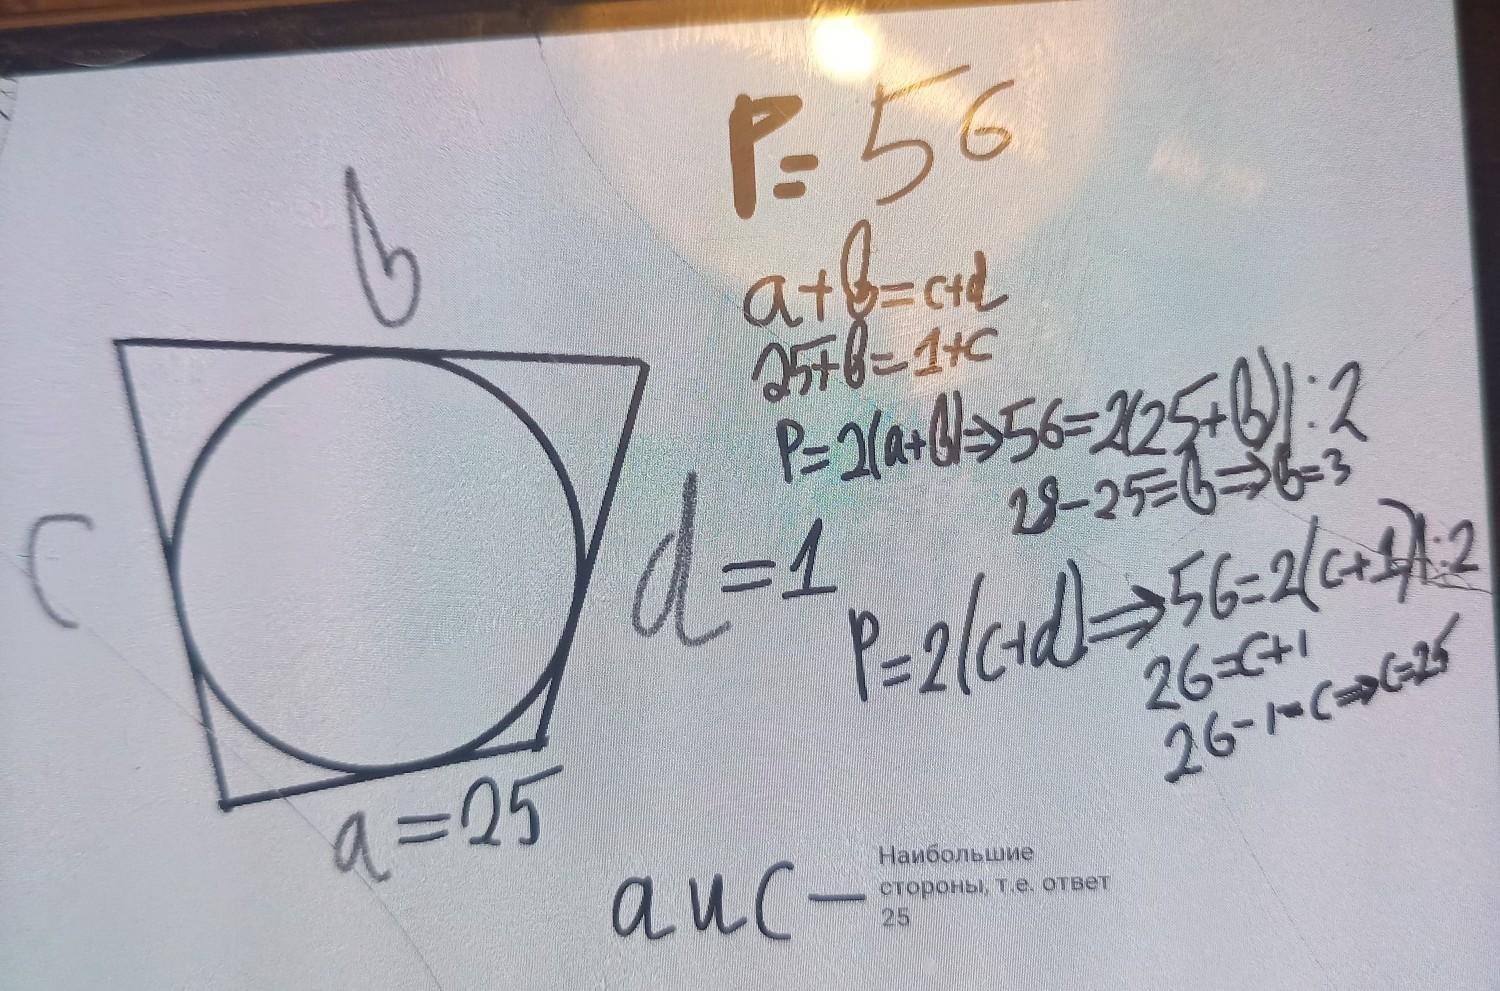 P= 56
a+b=c+d
25+b=1+c
P=2(a+b)⇒56=2(25+b)|:2
28-25=b⇒b=3
P=2(c+d)⇒56=2(c+1)|:2
26=c+1
26-1=c⇒c=25
b
c
d=1
a=25
a и c — Наибольшие
стороны, т.е. ответ
25